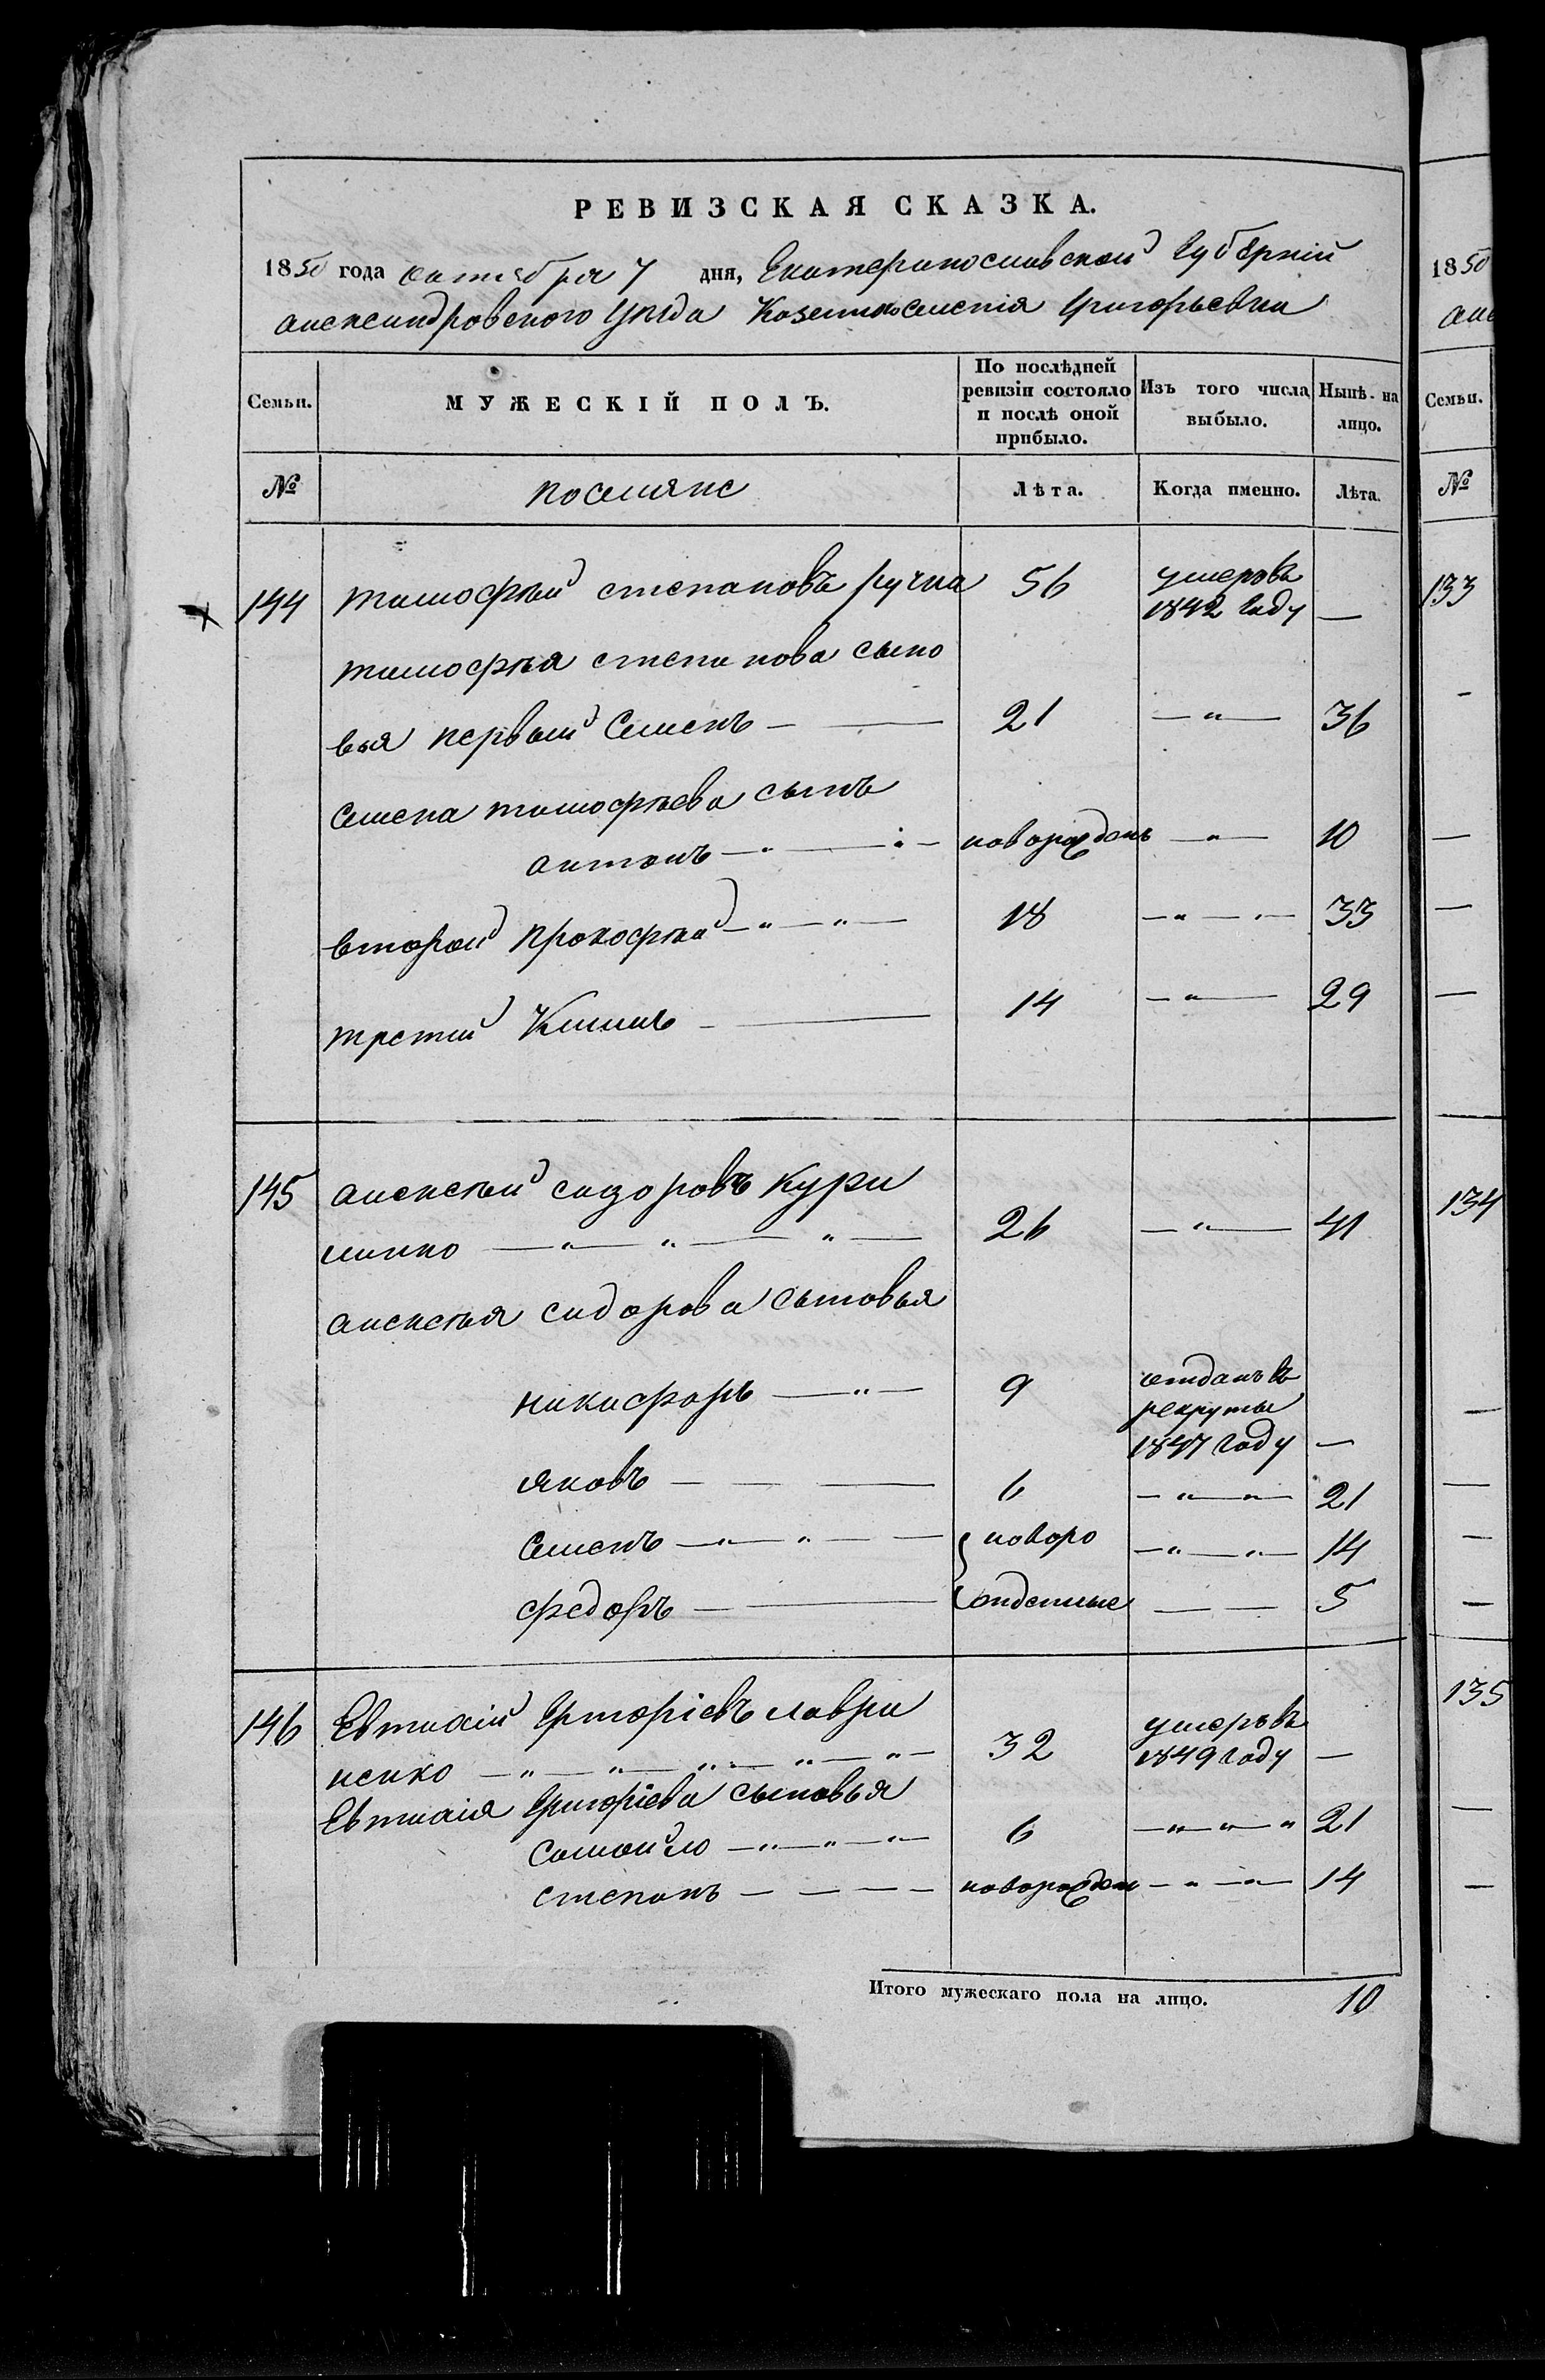 РЕВИЗСКАЯ СКАЗКА.
1850 года октября 7 дня, Екатеринославской Губернiи
александровского уѣзда Казеннаселенiя Григорьевки
Семьи. МУЖЕСКIЙ ПОЛЪ. По послѣдней ревизiи состояло и послѣ оной прибыло. Изъ того числа выбыло. Нынѣ на лицо.
№ поселяне Лѣта. Когда именно. Лѣта.
144 тимофѣй степановъ ручка 56 умеровъ 1842 году —
тимофѣя степанова сыно
вья первый Семенъ — 21 — " — 36
Семена тимофѣева сынъ
антонъ — новорожденъ — " — 10
второй прокофѣй — " — " — 18 — " — 33
третий Климъ — 14 — " — 29
145 алексѣй сидоровъ кури
линко — " — " — " — 26 — " — 41
алексѣя сидорова сыновья
никифоръ — " — 9 отданъ въ
рекруты
1847 году —
яковъ — 6 — " — " — 21
Семенъ — " — " — новоро — " — " — 14
федоръ — жденные — 5
146 Евтихiй Григорiевъ лаври
ненко — " — " — " — " — " — 32 умеръ въ 1849 году —
Евтихiя Григорiева сыновья
Самойло — " — " — " — 6 — " — " — " 21
степанъ — новорожден — " — " — 14
Итого мужескаго пола на лицо. 10
1850
але
Семьи.
№
133
134
135